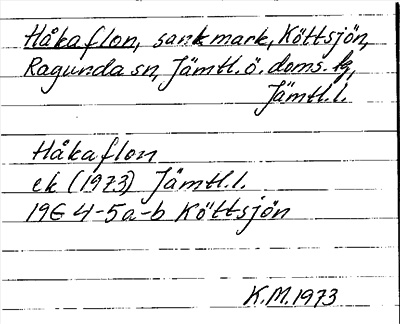 Håkaflon, sankmark, Köttsjön,
Ragunda sn, Jämtl.ö. doms. fg,
Jämtl.l.
Håkaflon
ek (1973) Jämtl.l.
19G 4-5a-b Köttsjön
K.M.1973